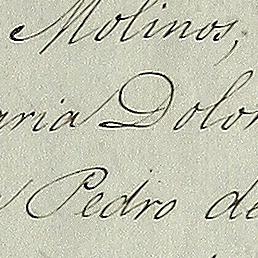 Molinos,
aria Dolor
Pedro de